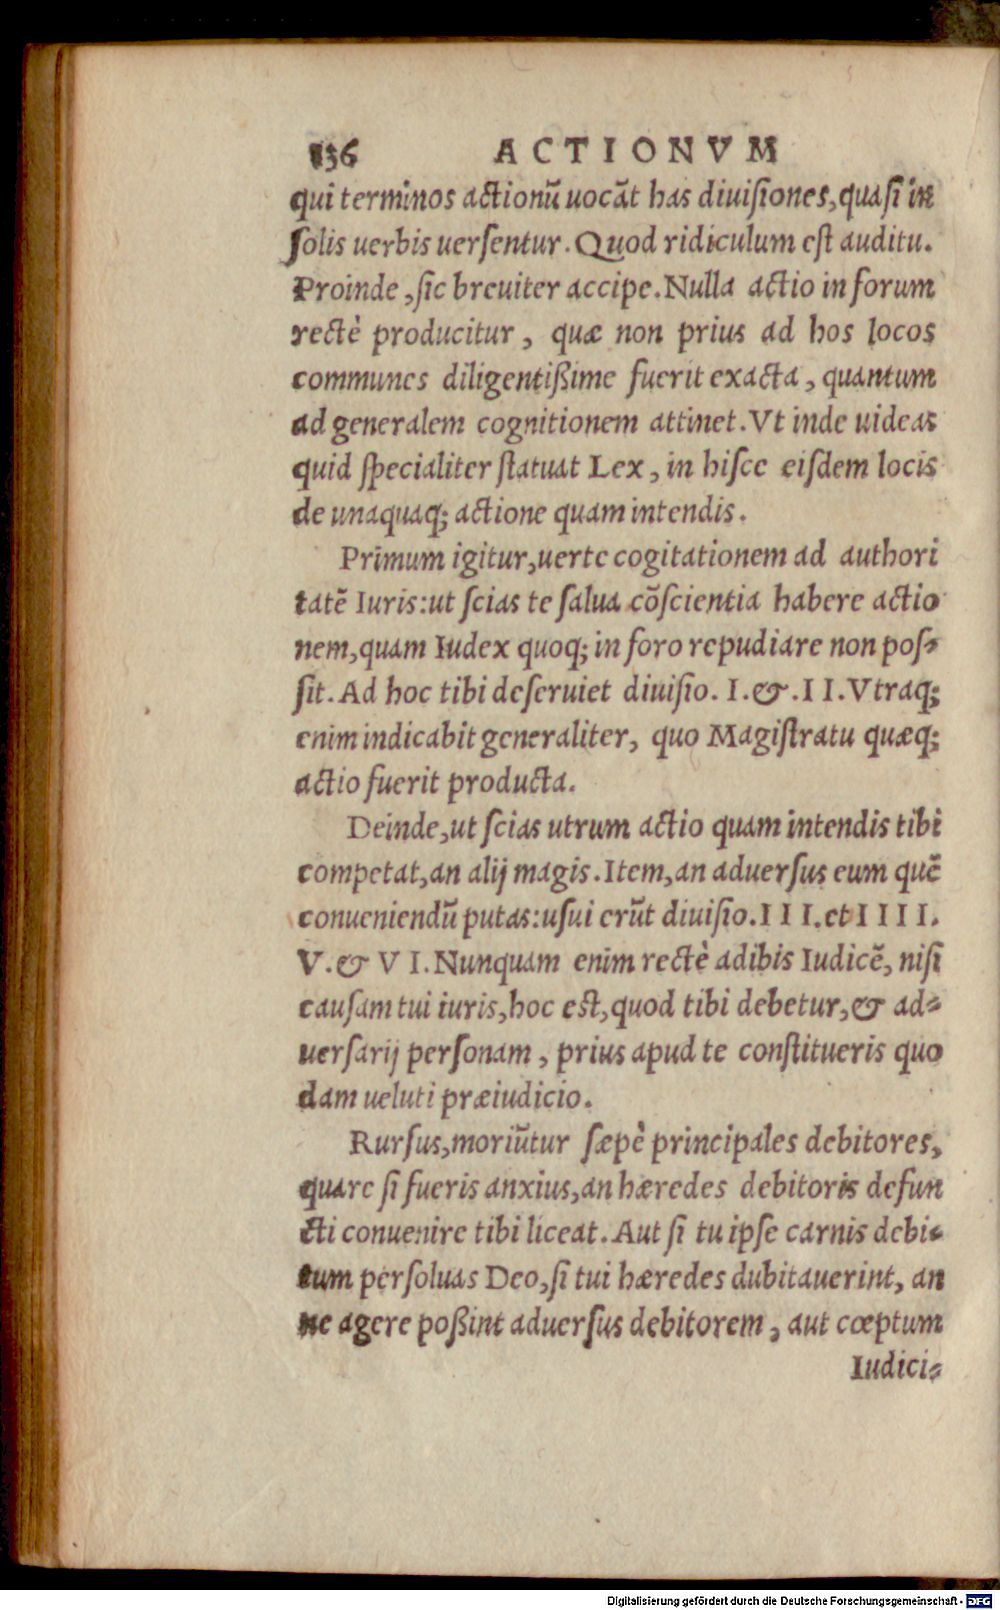 136 ACTIONVM
qui terminos actionũ uocãt has diuiſiones, quaſi in
ſolis uerbis uerſentur. Quod ridiculum eſt auditu.
Proinde, ſic breuiter accipe. Nulla actio in forum
rectè producitur, quæ non prius ad hos locos
communes diligentißime fuerit exacta, quantum
ad generalem cognitionem attinet. Vt inde uideas
quid ſpecialiter ſtatuat Lex, in hiſce eiſdem locis
de unaquaq; actione quam intendis.
Primum igitur, uerte cogitationem ad authori
tatẽ Iuris: ut ſcias te ſalua cõſcientia habere actio
nem, quam Iudex quoq; in foro repudiare non poſ-
ſit. Ad hoc tibi deſeruiet diuiſio. I. & . II. Vtraq;
enim indicabit generaliter, quo Magiſtratu quæq;
actio fuerit producta.
Deinde, ut ſcias utrum actio quam intendis tibi
competat, an alij magis. Item, an aduerſus eum quẽ
conueniendũ putas: uſui erũt diuiſio. III. et IIII.
V. & VI. Nunquam enim rectè adibis Iudicẽ, niſi
cauſam tui iuris, hoc eſt, quod tibi debetur, & ad-
uerſarij perſonam, prius apud te conſtitueris quo
dam ueluti præiudicio.
Rurſus, moriũtur ſæpè principales debitores,
quare ſi fueris anxius, an hæredes debitoris defun
cti conuenire tibi liceat. Aut ſi tu ipſe carnis debi-
tum perſoluas Deo, ſi tui hæredes dubitauerint, an
ne agere poßint aduerſus debitorem, aut cœptum
Iudici-
Digitalisierung gefördert durch die Deutsche Forschungsgemeinschaft - DFG